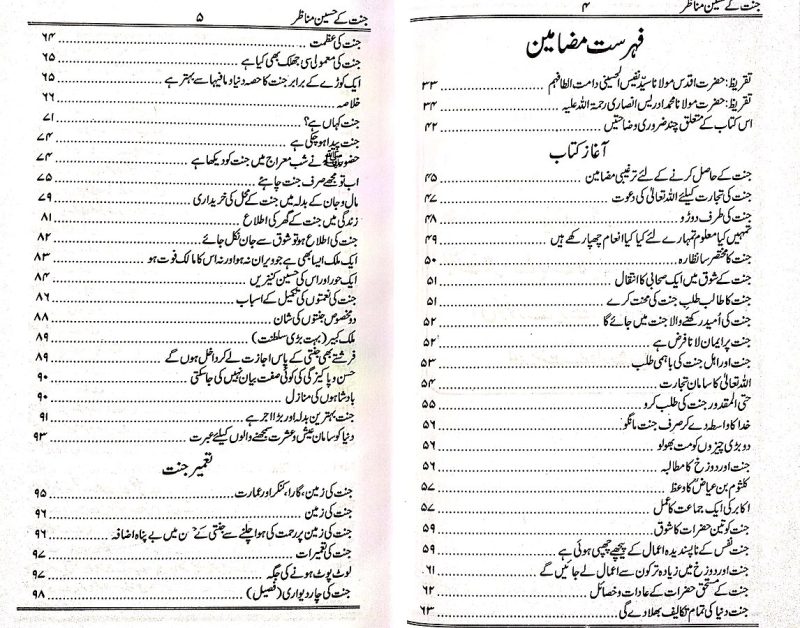 جنت کے حسین مناظر ۴
فہرست مضامین
تقریظ: حضرت اقدس مولانا سیّد نفیس الحسینی دامت الطافہم ۳۳
تقریظ: حضرت مولانا محمد ادریس انصاری رحمۃ اللہ علیہ ۳۴
اس کتاب کے متعلق چند ضروری وضاحتیں ۴۲
آغاز کتاب
جنت کے حاصل کرنے کے لئے ترغیبی مضامین ۴۵
جنت کی تجارت کیلئے اللہ تعالیٰ کی دعوت ۴۷
جنت کی طرف دوڑو ۴۸
تمہیں کیا معلوم تمہارے لئے کیا کیا انعام چھپا رکھے ہیں ۴۹
جنت کا مختصر سا نظارہ ۵۰
جنت کے شوق میں ایک صحابی کا انتقال ۵۱
جنت کا طالب طلب جنت کی محنت کرے ۵۱
جنت کی اُمید رکھنے والا جنت میں جائے گا ۵۲
جنت پر ایمان لانا فرض ہے ۵۲
جنت اور اہل جنت کی باہمی طلب ۵۳
اللہ تعالیٰ کا سامان تجارت ۵۴
حتی المقدور جنت کی طلب کرو ۵۵
خدا کا واسطہ دے کر صرف جنت مانگو ۵۶
دو بڑی چیزوں کو مت بھولو ۵۶
جنت اور دوزخ کا مطالبہ ۵۶
کلثوم بن عیاضؒ کا وعظ ۵۷
اکابر کی ایک جماعت کا عمل ۵۷
جنت کو تین حضرات کا شوق ۵۹
جنت نفس کے ناپسندیدہ اعمال کے پیچھے چھپی ہوئی ہے ۵۹
جنت اور دوزخ میں زیادہ تر کون سے اعمال لے جائیں گے ۶۱
جنت کے مستحق حضرات کے عادات و خصائل ۶۲
جنت دنیا کی تمام تکالیف بھلا دے گی ۶۳
جنت کے حسین مناظر ۵
جنت کی عظمت ۶۴
جنت کی معمولی سی جھلک بھی کیا ہے ۶۵
ایک کوڑے کے برابر جنت کا حصہ دنیا و مافیہا سے بہتر ہے ۶۵
خلاصہ ۶۶
جنت کہاں ہے؟ ۷۱
جنت پیدا ہو چکی ہے ۷۴
حضور ﷺ نے شب معراج میں جنت کو دیکھا ہے ۷۴
اب تو مجھے صرف جنت چاہئے ۷۵
مال و جان کے بدلہ میں جنت کے محل کی خریداری ۷۹
زندگی میں جنت کے گھر کی اطلاع ۸۱
جنت کی اطلاع ہو تو شوق سے جان نکل جائے ۸۲
ایک ملک ایسا بھی ہے جو ویران نہ ہو اور نہ اس کا مالک فوت ہو ۸۳
ایک حور اور اس کی حسین کنیزیں ۸۴
جنت کی نعمتوں کی تکمیل کے اسباب ۸۶
دو مخصوص جنتوں کی شان ۸۸
ملک کبیر (بہت بڑی سلطنت) ۸۹
فرشتے بھی جنتی کے پاس اجازت لے کر داخل ہوں گے ۸۹
حسن و پاکیزگی کی کوئی صفت بیان نہیں کی جا سکتی ۹۰
بادشاہوں کی منازل ۹۰
جنت بہترین بدلہ اور بڑا اجر ہے ۹۱
دنیا کو سامان عیش و عشرت سمجھنے والوں کیلئے عبرت ۹۳
تعمیر جنت
جنت کی زمین، گارا، کنکر اور عمارت ۹۵
جنت کی زمین ۹۶
جنت کی زمین پر رحمت کی ہوا چلنے سے جنتی کے حسن میں بے پناہ اضافہ ۹۶
جنت کی تعمیرات ۹۷
لوٹ پوٹ ہونے کی جگہ ۹۷
جنت کی چار دیواری (فصیل) ۹۸